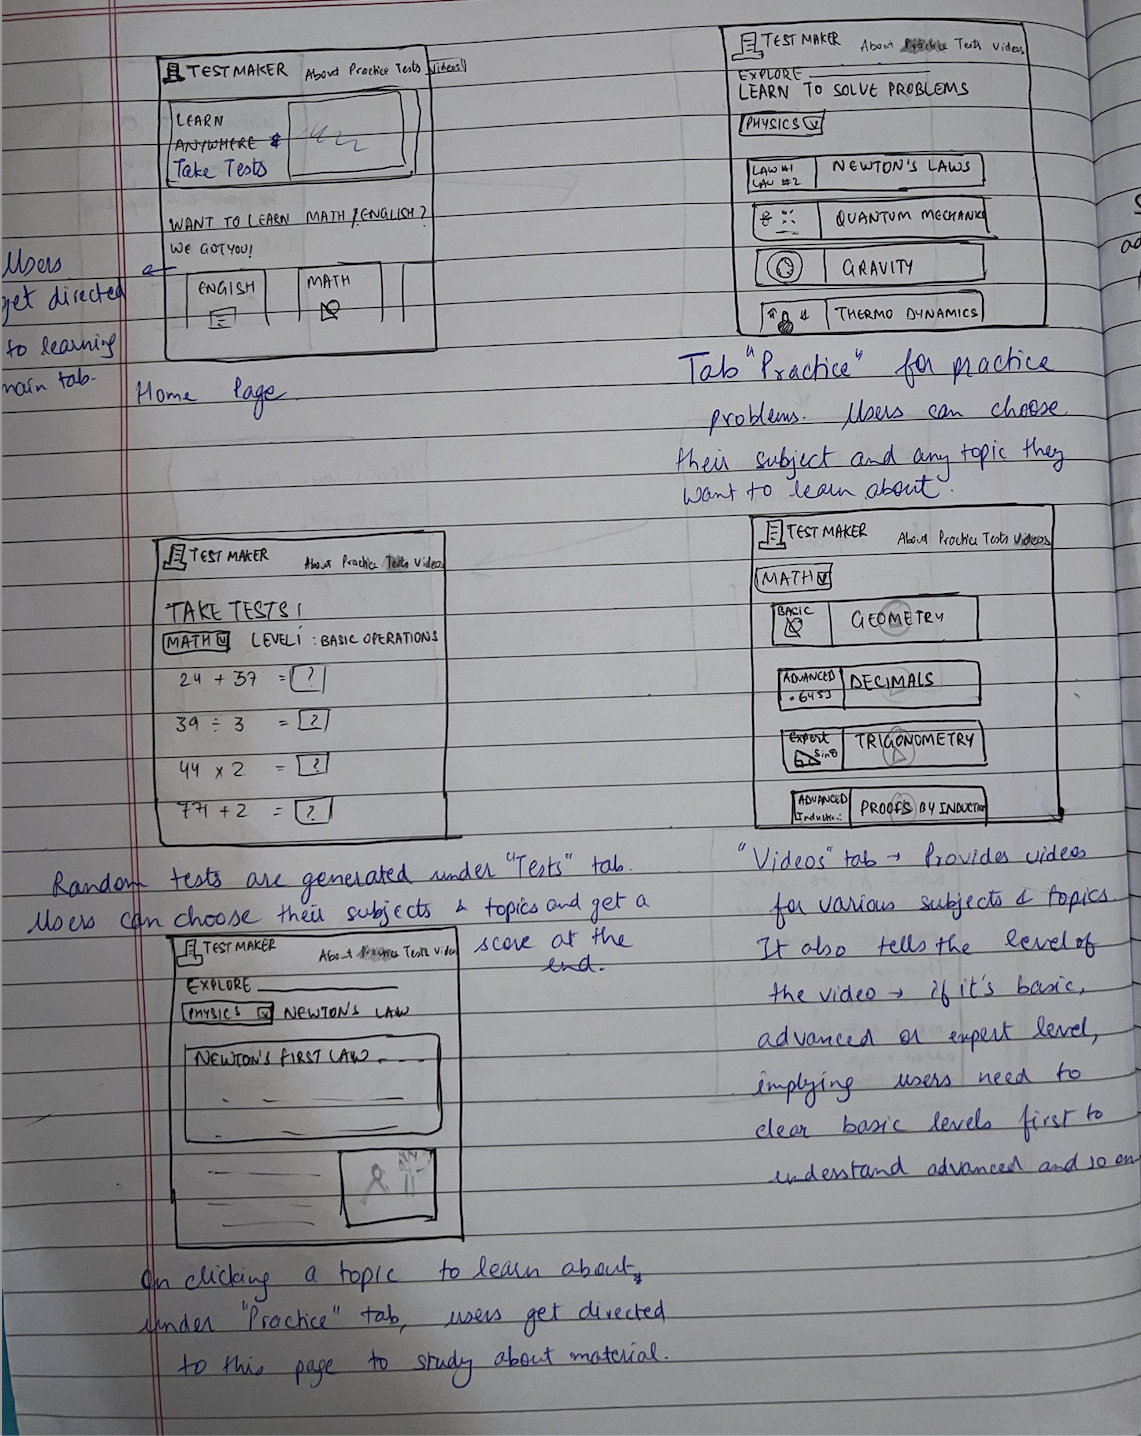 TEST MAKER About Practice Tests Videos
LEARN
ANYWHERE &
Take Tests
WANT TO LEARN MATH / ENGLISH?
WE GOT YOU!
ENGISH
MATH
Users
get directed
to learning
main tab.
Home Page
TEST MAKER About Practice Tests Videos
EXPLORE
LEARN TO SOLVE PROBLEMS
PHYSICS
LAW #1
LAW #2
NEWTON'S LAWS
QUANTUM MECHANIC
GRAVITY
THERMO DYNAMICS
Tab "Practice" for practice
problems. Users can choose
their subject and any topic they
want to learn about.
TEST MAKER About Practice Tests Videos
TAKE TESTS!
MATH LEVEL1 : BASIC OPERATIONS
24 + 37 = ?
39 ÷ 3 = ?
44 x 2 = ?
771 + 2 = ?
Random tests are generated under "Tests" tab.
Users can choose their subjects & topics and get a
score at the
end.
TEST MAKER About Practice Tests Videos
MATH
BASIC
GEOMETRY
ADVANCED
.6453
DECIMALS
Expert
Sinθ
TRIGONOMETRY
ADVANCED
PROOFS BY INDUCTION
"Videos" tab → Provides videos
for various subjects & topics
It also tells the level of
the video → if it's basic,
advanced or expert level,
implying users need to
clear basic levels first to
understand advanced and so on
TEST MAKER About Practice Tests Video
EXPLORE
PHYSICS NEWTON'S LAW
NEWTON'S FIRST LAW
On clicking a topic to learn about,
under "Practice" tab, users get directed
to this page to study about material.